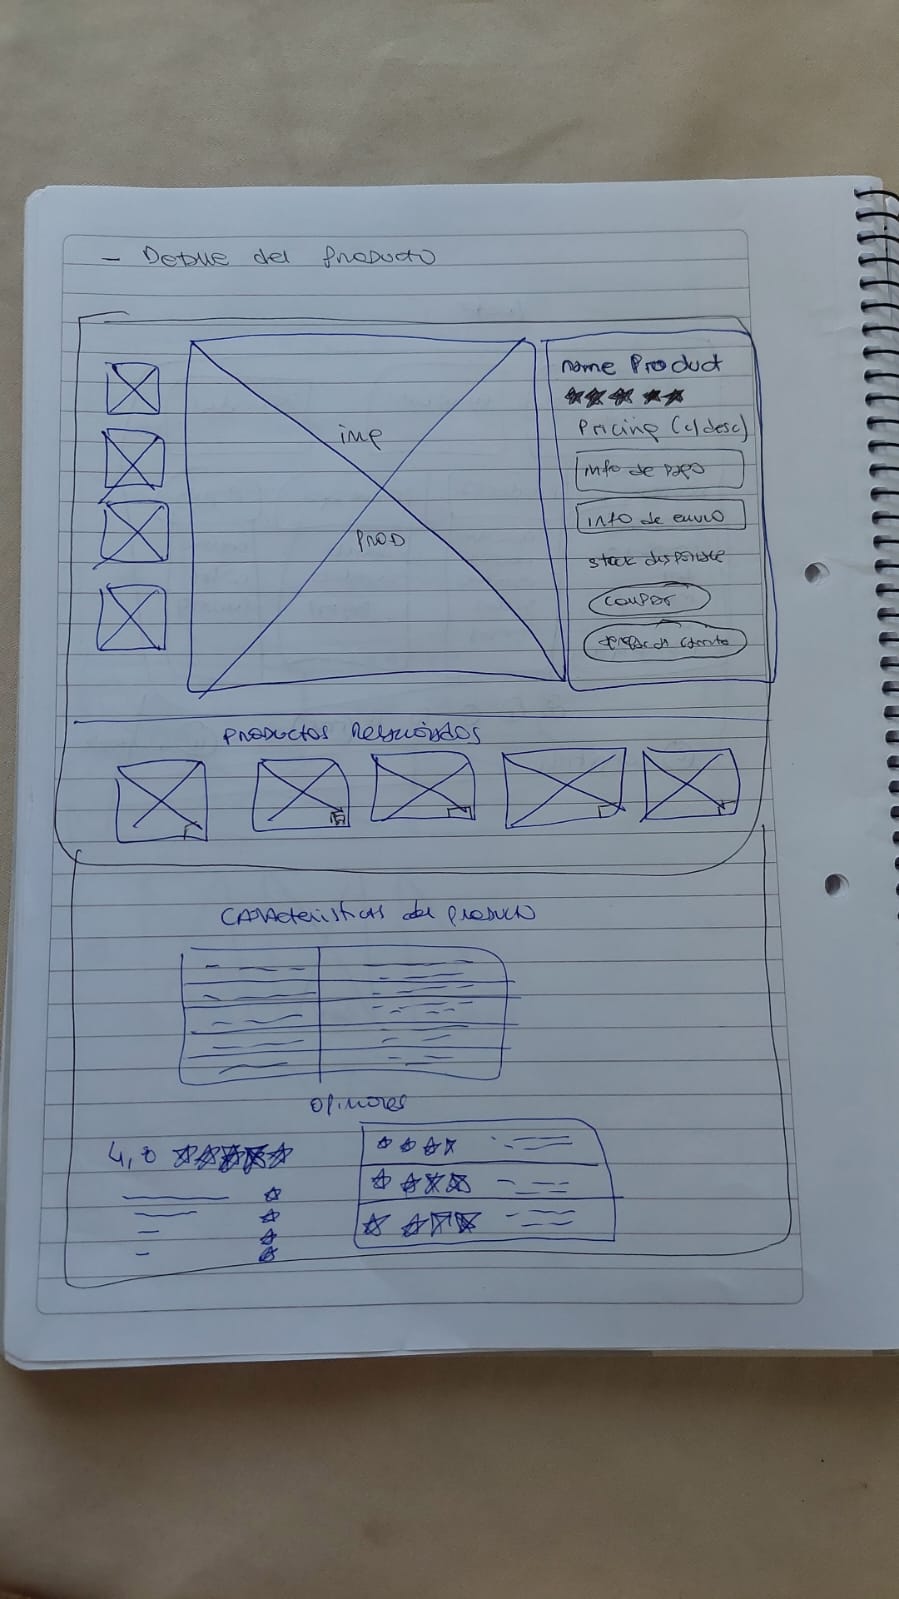 - Detalle del producto
img
PROD
name Product
Pricing (c/desc)
info de pago
info de envio
stock disponible
comprar
PRODUCTOS Relacionados
Características del producto
Opiniones
4,8